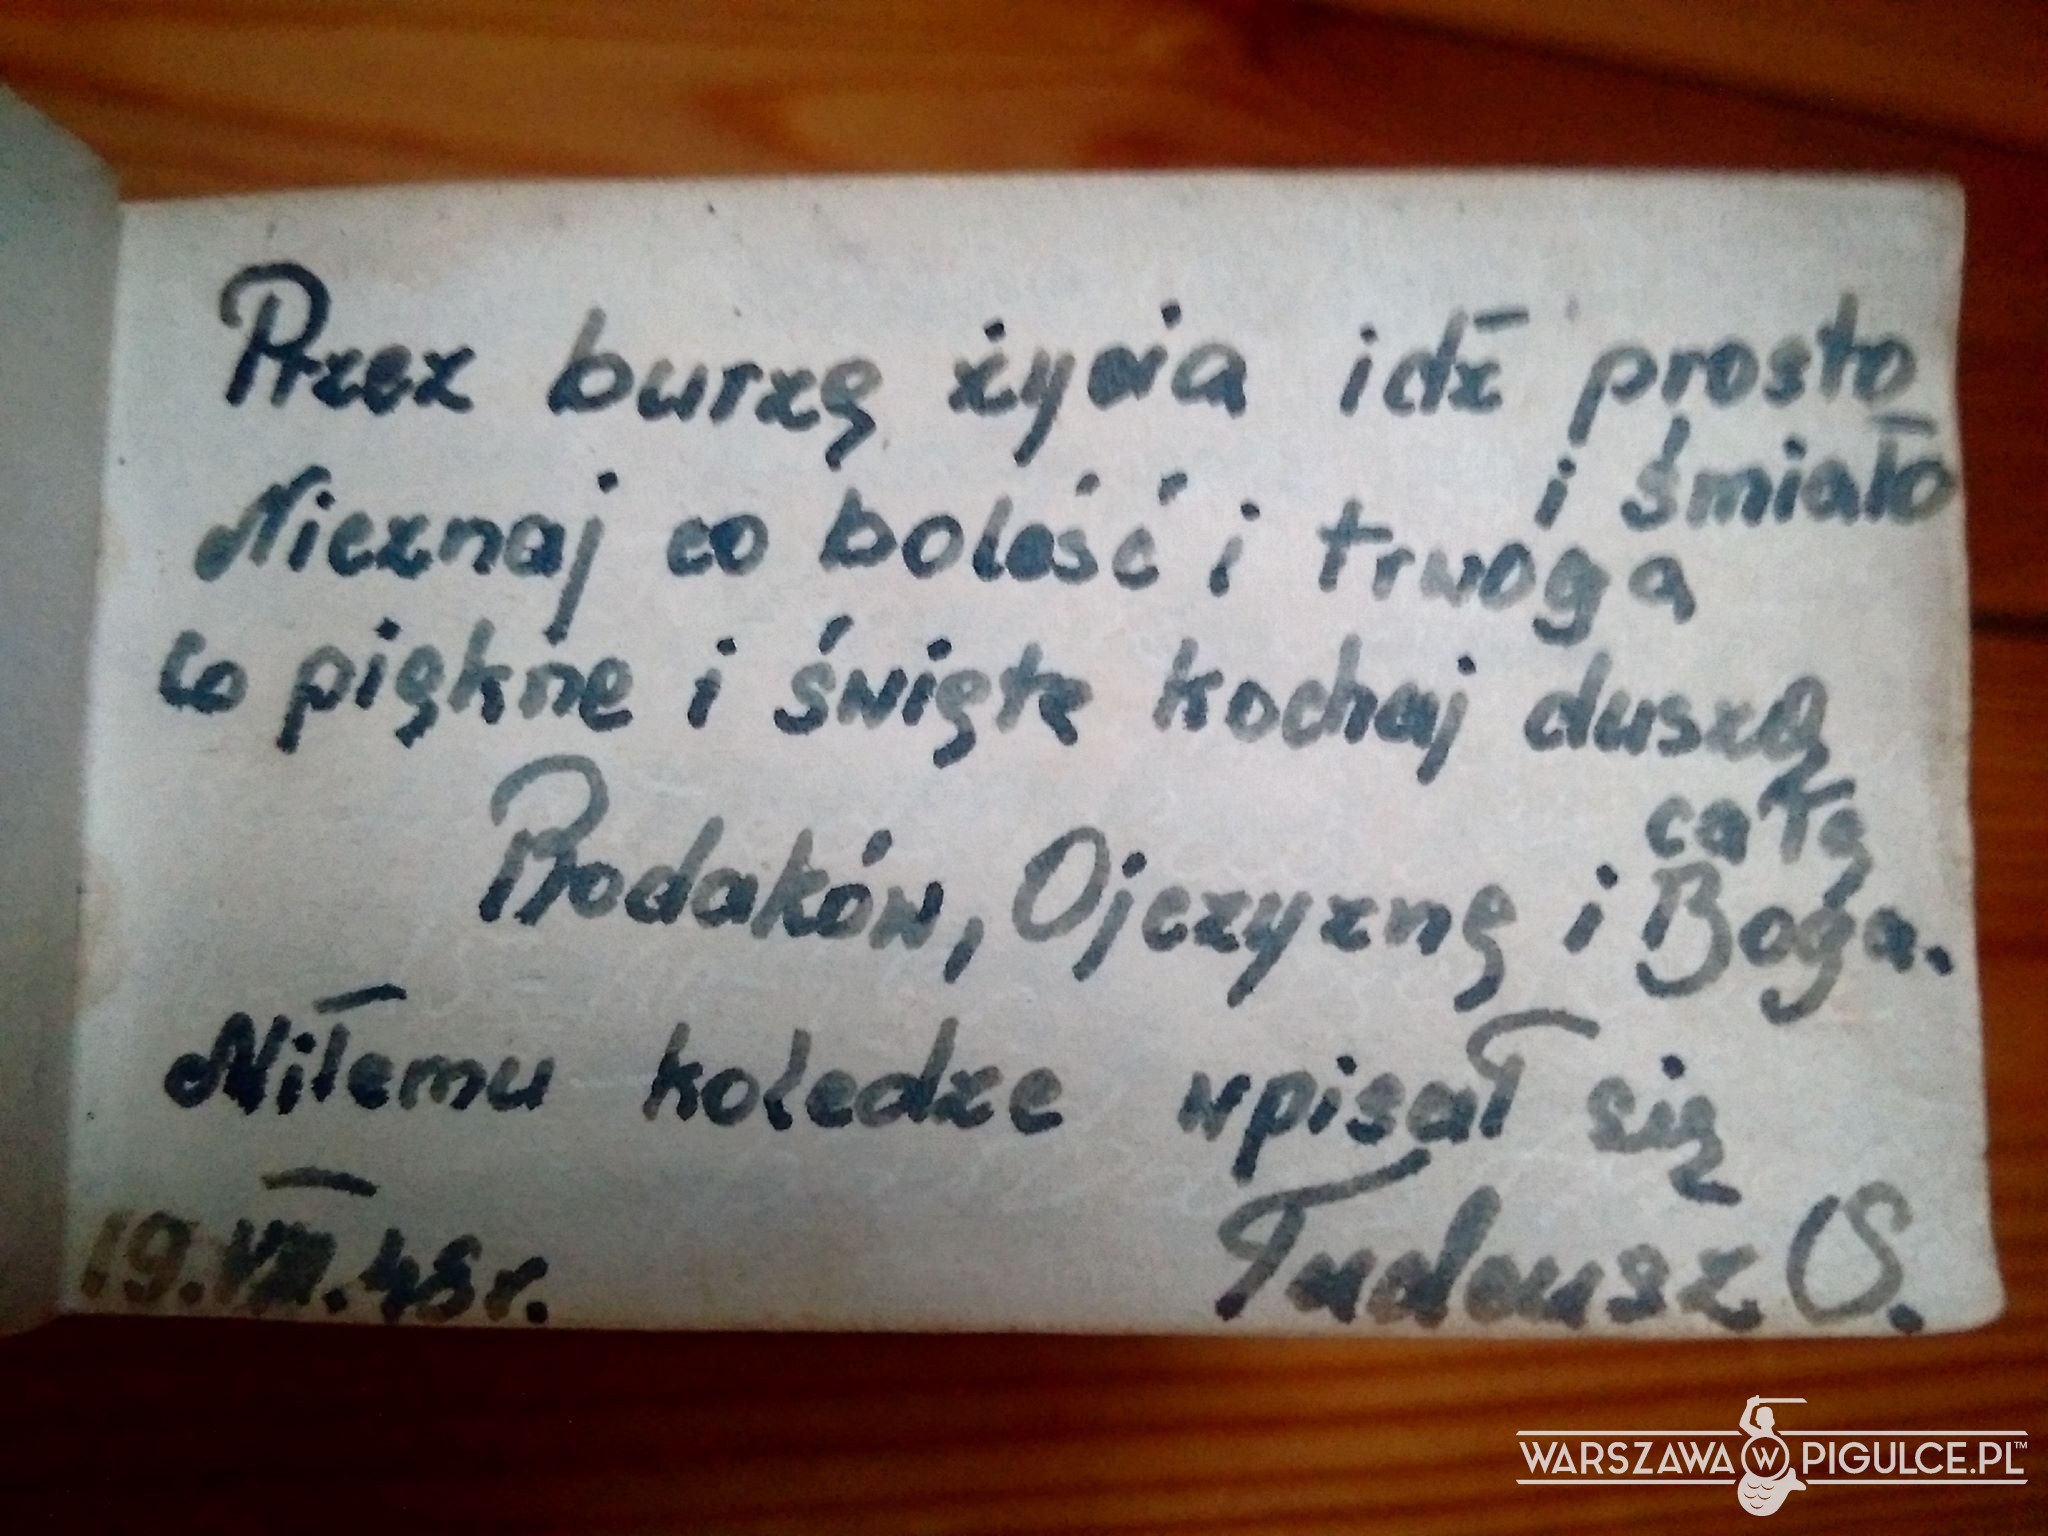 Przez burzę życia idź prosto
i śmiało
Nieznaj co boleść i trwoga
co piękne i święte kochaj duszą
całą
Rodaków, Ojczyznę i Boga.
Miłemu koledze wpisał się
19.VIII.48r.
Tadeusz S.
WARSZAWA W PIGULCE.PL™